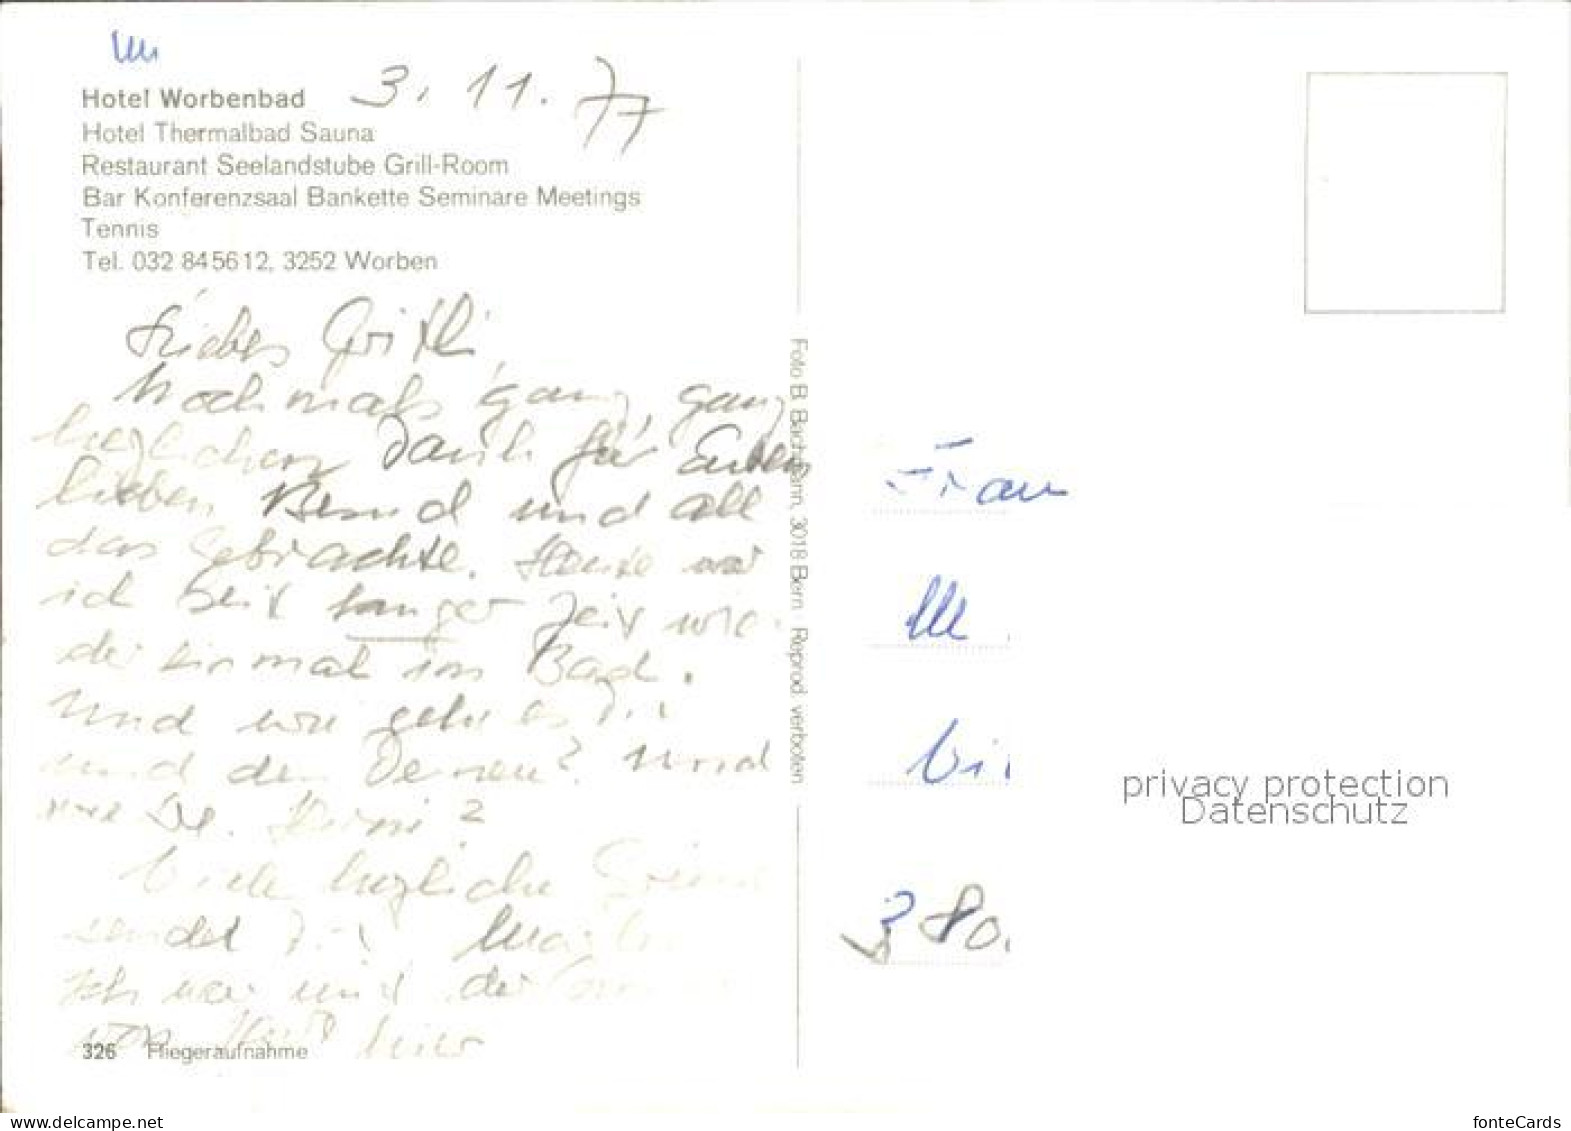 3. 11. 77
Hotel Worbenbad
Hotel Thermalbad Sauna
Restaurant Seelandstube Grill-Room
Bar Konferenzsaal Bankette Seminare Meetings
Tennis
Tel. 032 845612, 3252 Worben
Liebes Gritli,
Nochmals ganz, ganz
herzlichen Dank für Euren
lieben Besuch und all
das Gebrachte. Heute war
ich seit langer Zeit wie
der einmal im Bad.
Und wie geht es Dir
und den Deinen? Und
Viele herzliche Grüsse
sendet Dir
Ich war mit der
hier
326 Fliegeraufnahme
Foto B. Bachmann, 3018 Bern Reprod. verboten
Frau
380
privacy protection
Datenschutz
www.delcampe.net
fonteCards